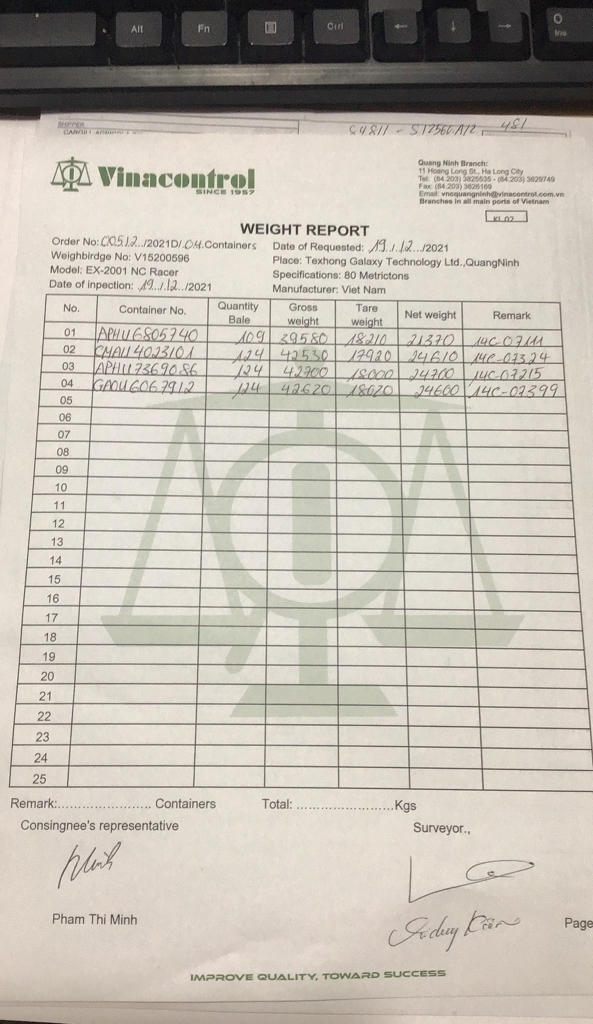 Alt
Fn
Ctrl
O
Ins
SHIPPER
S4811 - S12560A12 481
Vinacontrol
SINCE 1957
Quang Ninh Branch:
11 Hoang Long St., Ha Long City
Tel: (84.203) 3825535 - (84.203) 3829749
Fax: (84.203) 3826169
Email: vncquangninh@vinacontrol.com.vn
Branches in all main ports of Vietnam
WEIGHT REPORT
Order No: 00512../2021D/.04.Containers
Date of Requested: 19./.12../2021
Weighbirdge No: V15200596
Place: Texhong Galaxy Technology Ltd.,QuangNinh
Model: EX-2001 NC Racer
Specifications: 80 Metrictons
Date of inpection: 19../.12../2021
Manufacturer: Viet Nam
No. Container No. Quantity Bale Gross weight Tare weight Net weight Remark
01 APHU6805740 109 39580 18210 21370 14C-07111
02 CMAU4023101 124 42530 17920 24610 14C-07324
03 APHU7369086 124 42700 18000 24700 14C-07215
04 GAOU6067912 124 42620 18020 24600 14C-07399
05
06
07
08
09
10
11
12
13
14
15
16
17
18
19
20
21
22
23
24
25
Remark:...................... Containers Total: .......................Kgs
Consingnee's representative Surveyor.,
Minh
Pham Thi Minh
Page
IMPROVE QUALITY, TOWARD SUCCESS